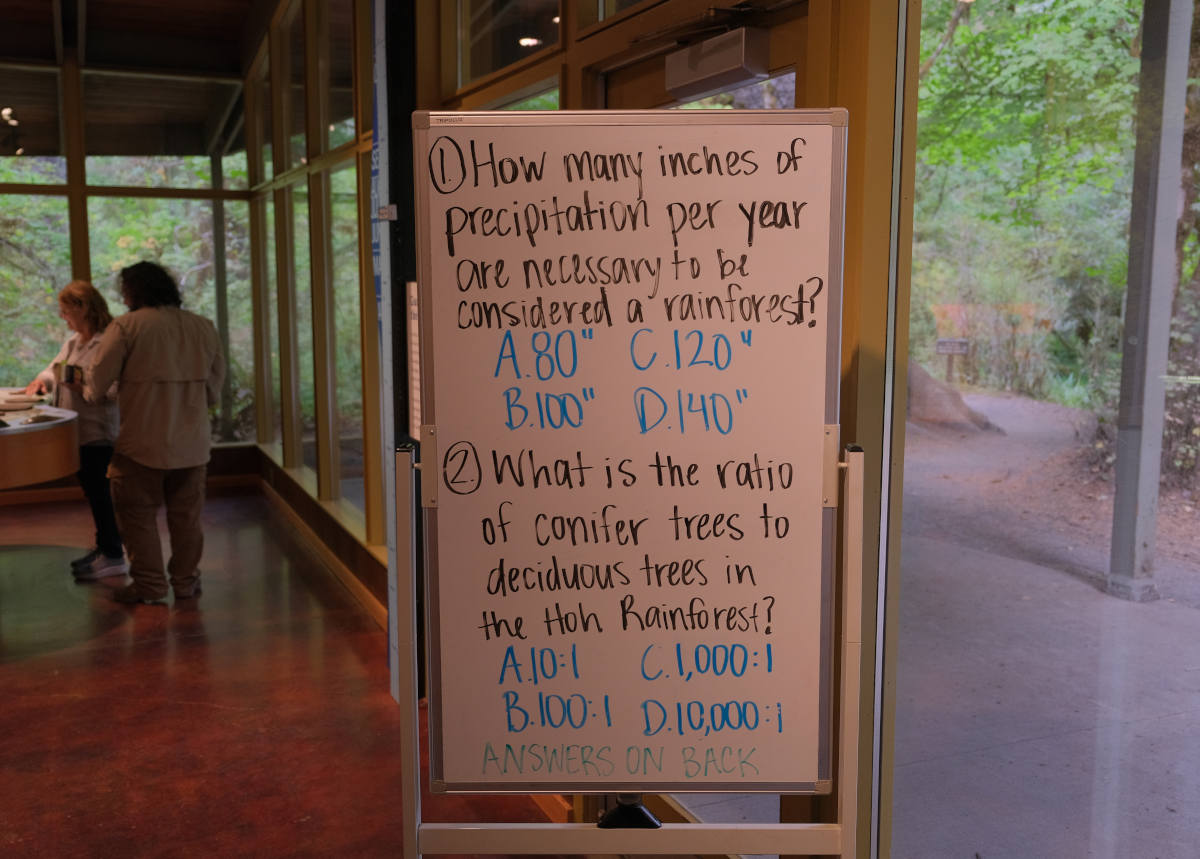 1. How many inches of
precipitation per year
are necessary to be
considered a rainforest?
A. 80" C. 120"
B. 100" D. 140"
2. What is the ratio
of conifer trees to
deciduous trees in
the Hoh Rainforest?
A. 10:1 C. 1,000:1
B. 100:1 D. 10,000:1
ANSWERS ON BACK